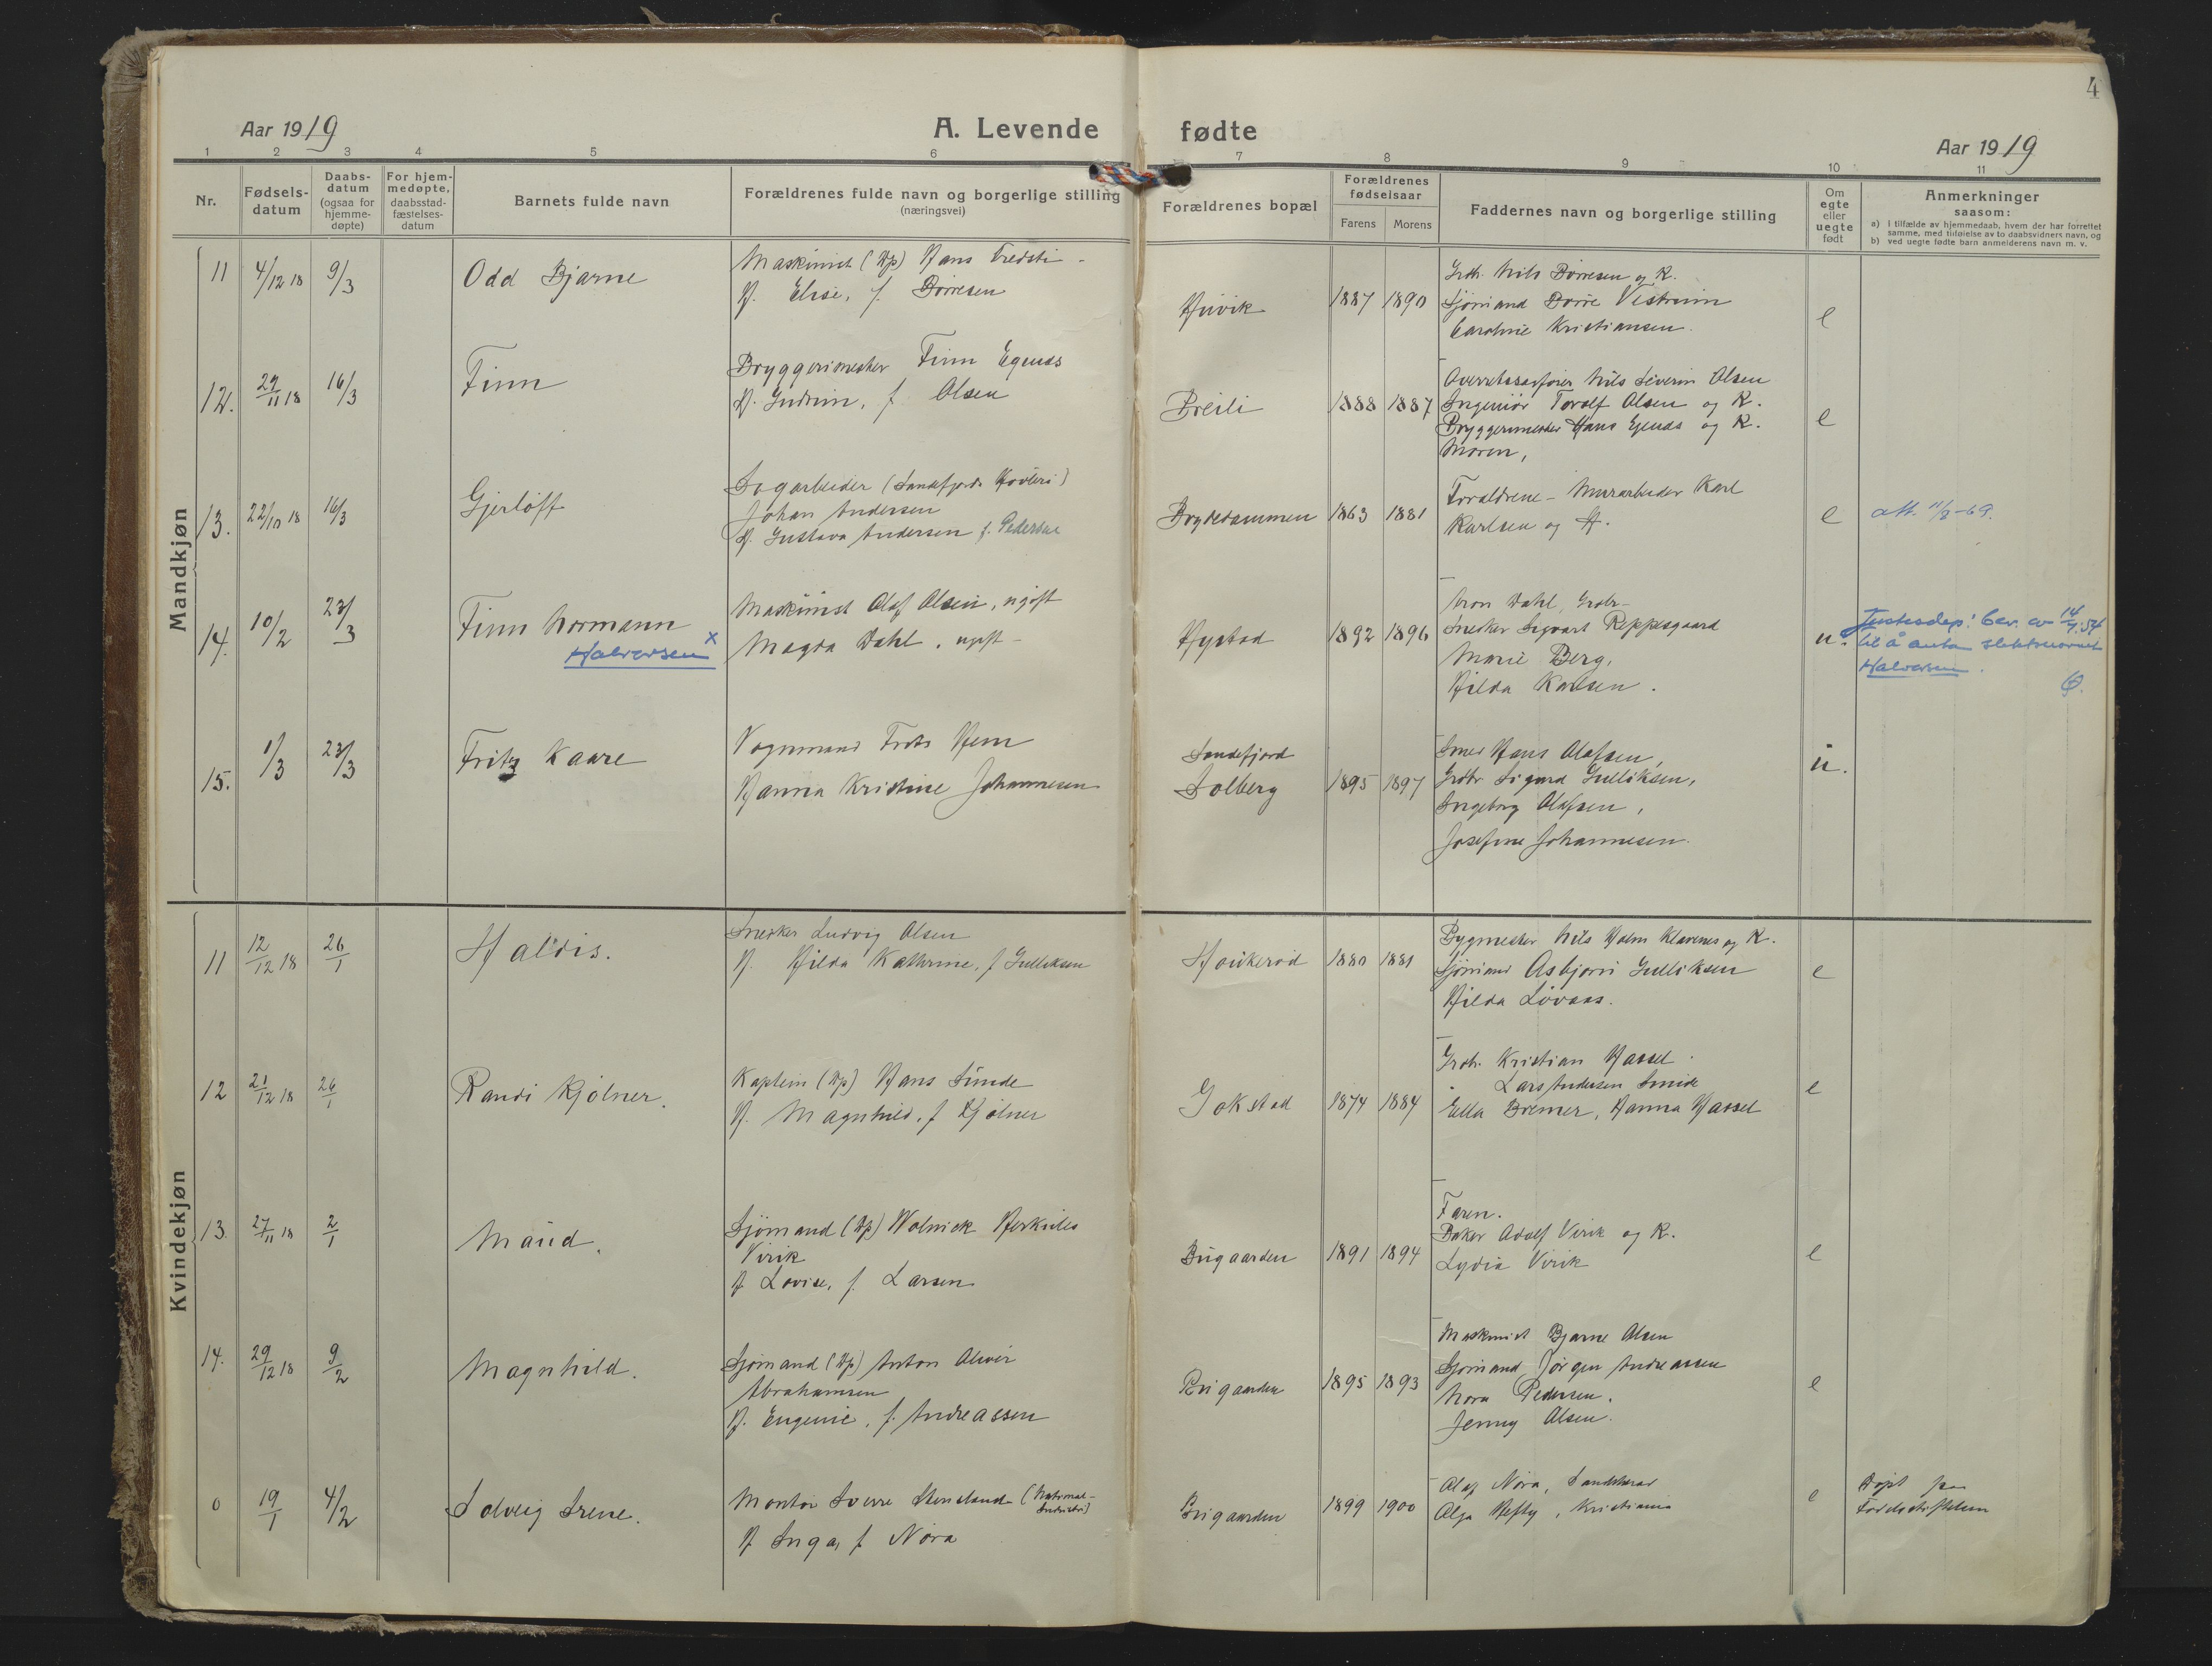 4
Aar 1919
A. Levende fødte
Aar 1919
1 2 3 4 5 6 7 8 9 10 11
Nr.
Fødsels-
datum
Daabs-
datum
(ogsaa for
hjemme-
døpte)
For hjem-
medøpte,
daabsstad-
fæstelses-
datum
Barnets fulde navn
Forældrenes fulde navn og borgerlige stilling
(næringsvei)
Forældrenes bopæl
Forældrenes
fødselsaar
Farens Morens
Faddernes navn og borgerlige stilling
Om
egte
eller
uegte
født
Anmerkninger
saasom:
a) i tilfælde av hjemmedaab, hvem der har forrettet
samme, med tilføielse av to daabsvidners navn, og
b) ved uegte fødte barn anmelderens navn m. v.
Mandkjøn
11 4/12 18 9/3 Odd Bjarne
Maskinist (Dp) Hans
H. Elise, f. Börresen
Hüvik 1887 1890
Grdbr. Nils Börresen og K.
Sjömand Börre Vestrum
Caroline Kristiansen.
e
12. 29/11 18 16/3 Finn
Bryggerimester Finn Egenæs
H. Gudrun, f. Olsen
Breili 1888 1887
Overretssagförer Nils Severin Olsen
Ingeniör Toralf Olsen og K.
Bryggerimester Hans Egenæs og K.
Moren,
e
13. 22/10 18 16/3 Gjerlöff
Sagarbeider (Sandefjords Hövleri)
Johan Andersen
H. Gustava Andersen f. Pedersen
Brydedammen 1863 1881
Forældrene - Murarbeider Karl
Karlsen og H.
e att. 11/8-69.
14. 10/2 23/3 Finn Normann
Halvorsen x
Maskinist Olaf Olsen, ugift
Magda Dahl, ugift -
Hystad 1892 1896
Aron Dahl, Grdbr-
Snekker Sigvart Reppesgaard
Marie Berg,
Hilda Karlsen.
u.
Justisdep! bev. av 14/7.54
til å anta slektsnavnet
Halvorsen.
15. 1/3 23/3 Fritz Kaare
Vognmand Frits Hem
Hanna Kristine Johannesen
Sandefjord
Solberg 1895 1897
Smed Hans Olafsen,
Grdbr. Sigurd Gulliksen,
Ingeborg Olafsen,
Josefine Johannesen.
u.
Kvindekjøn
11 12/12 18 26/1 Haldis.
Snekker Ludvig Olsen
H. Hilda Kathrine, f Gulliksen
Haukeröd 1880 1881
Bygmester Nils Holm Klavenes og K.
Sjömand Asbjørn Gulliksen
Hilda Lövaas.
e
12 21/12 18 26/1 Randi Kjölner.
Kaptein (Dp) Hans Sunde
H. Magnhild, f Kjölner
Gokstad 1874 1884
Grdbr. Kristian Hassel
" Lars Andersen Sunde
Ella Bremer, Hanna Hassel
e
13. 27/11 18 2/1 Maud.
Sjömand (Dp) Herkules
Virik
H Lovise, f. Larsen
Bugaarden 1891 1894
Faren.
Baker Adolf Virik og K.
Lydia Virik
e
14. 29/12 18 9/2 Magnhild.
Sjömand (Dp) Anton Oliver
Abrahamsen
H. Eugenie, f. Andreassen
Bugaarden 1895 1893
Maskinist Bjarne Olsen
Sjömand Jörgen Andreassen
Nora Pedersen.
Jenny Olsen.
e
0 19/1 4/2 Solveig Irene.
Montör Sverre Stensland (National-
Industri)
H Inga, f Nöra
Bugaarden 1899 1900
Olaf Nöra, Sandeherad
Olga Hefty, Kristiania
e
Döpt paa
Födselsstiftelsen